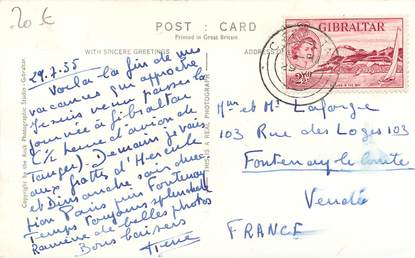 20 €
POST : CARD
Printed in Great Britain
WITH SINCERE GREETINGS
ADDRESS O
Copyright by the Rock Photographic Studio - Gibraltar
THIS IS A REAL PHOTOGRAPH
GIBRALTAR
29.7.55
Voilà la fin de mes
vacances qui approche
Je suis venu passer la
journée à Gibraltar
(½ heure d'avion de
Tanger). Demain je vais
aux grottes d'Hercule
et Dimanche soir direc
tion Paris puis Fontenay
Temps toujours splendide
Ramène de belles photos
Bons baisers
Pierre
Mr et Me Laforge
103 Rue des Loges 103
Fontenay le Comte
Vendée
FRANCE